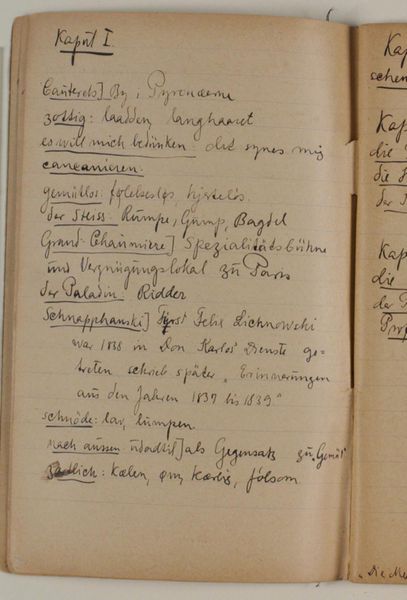 Kaput I.
Cauterets] By i Pyrenæerne
zottig: laadden, langhaaret
es will mich bedünken: det synes mig
cancanieren:
gemütlos: følelsesløs, hjerteløs.
der Steiss: Rumpe, Gump, Bagdel
Grand-Chaumière] Spezialitätsbühne
und Vergnügungslokal zu Paris
der Paladin: Ridder
Schnapphanski] Fürst Felix Lichnowski
war 1838 in Don Karlos' Dienste ge-
treten schrieb später „Erinnerungen
aus den Jahren 1837 bis 1839."
schnöde: lav, lumpen.
nach aussen udadtil] als Gegensatz zu „Gemüt"
kælen, øm, kærlig, følsom
Kap
schen
Kap
die
die
der
Kap
die
der
„Die Me